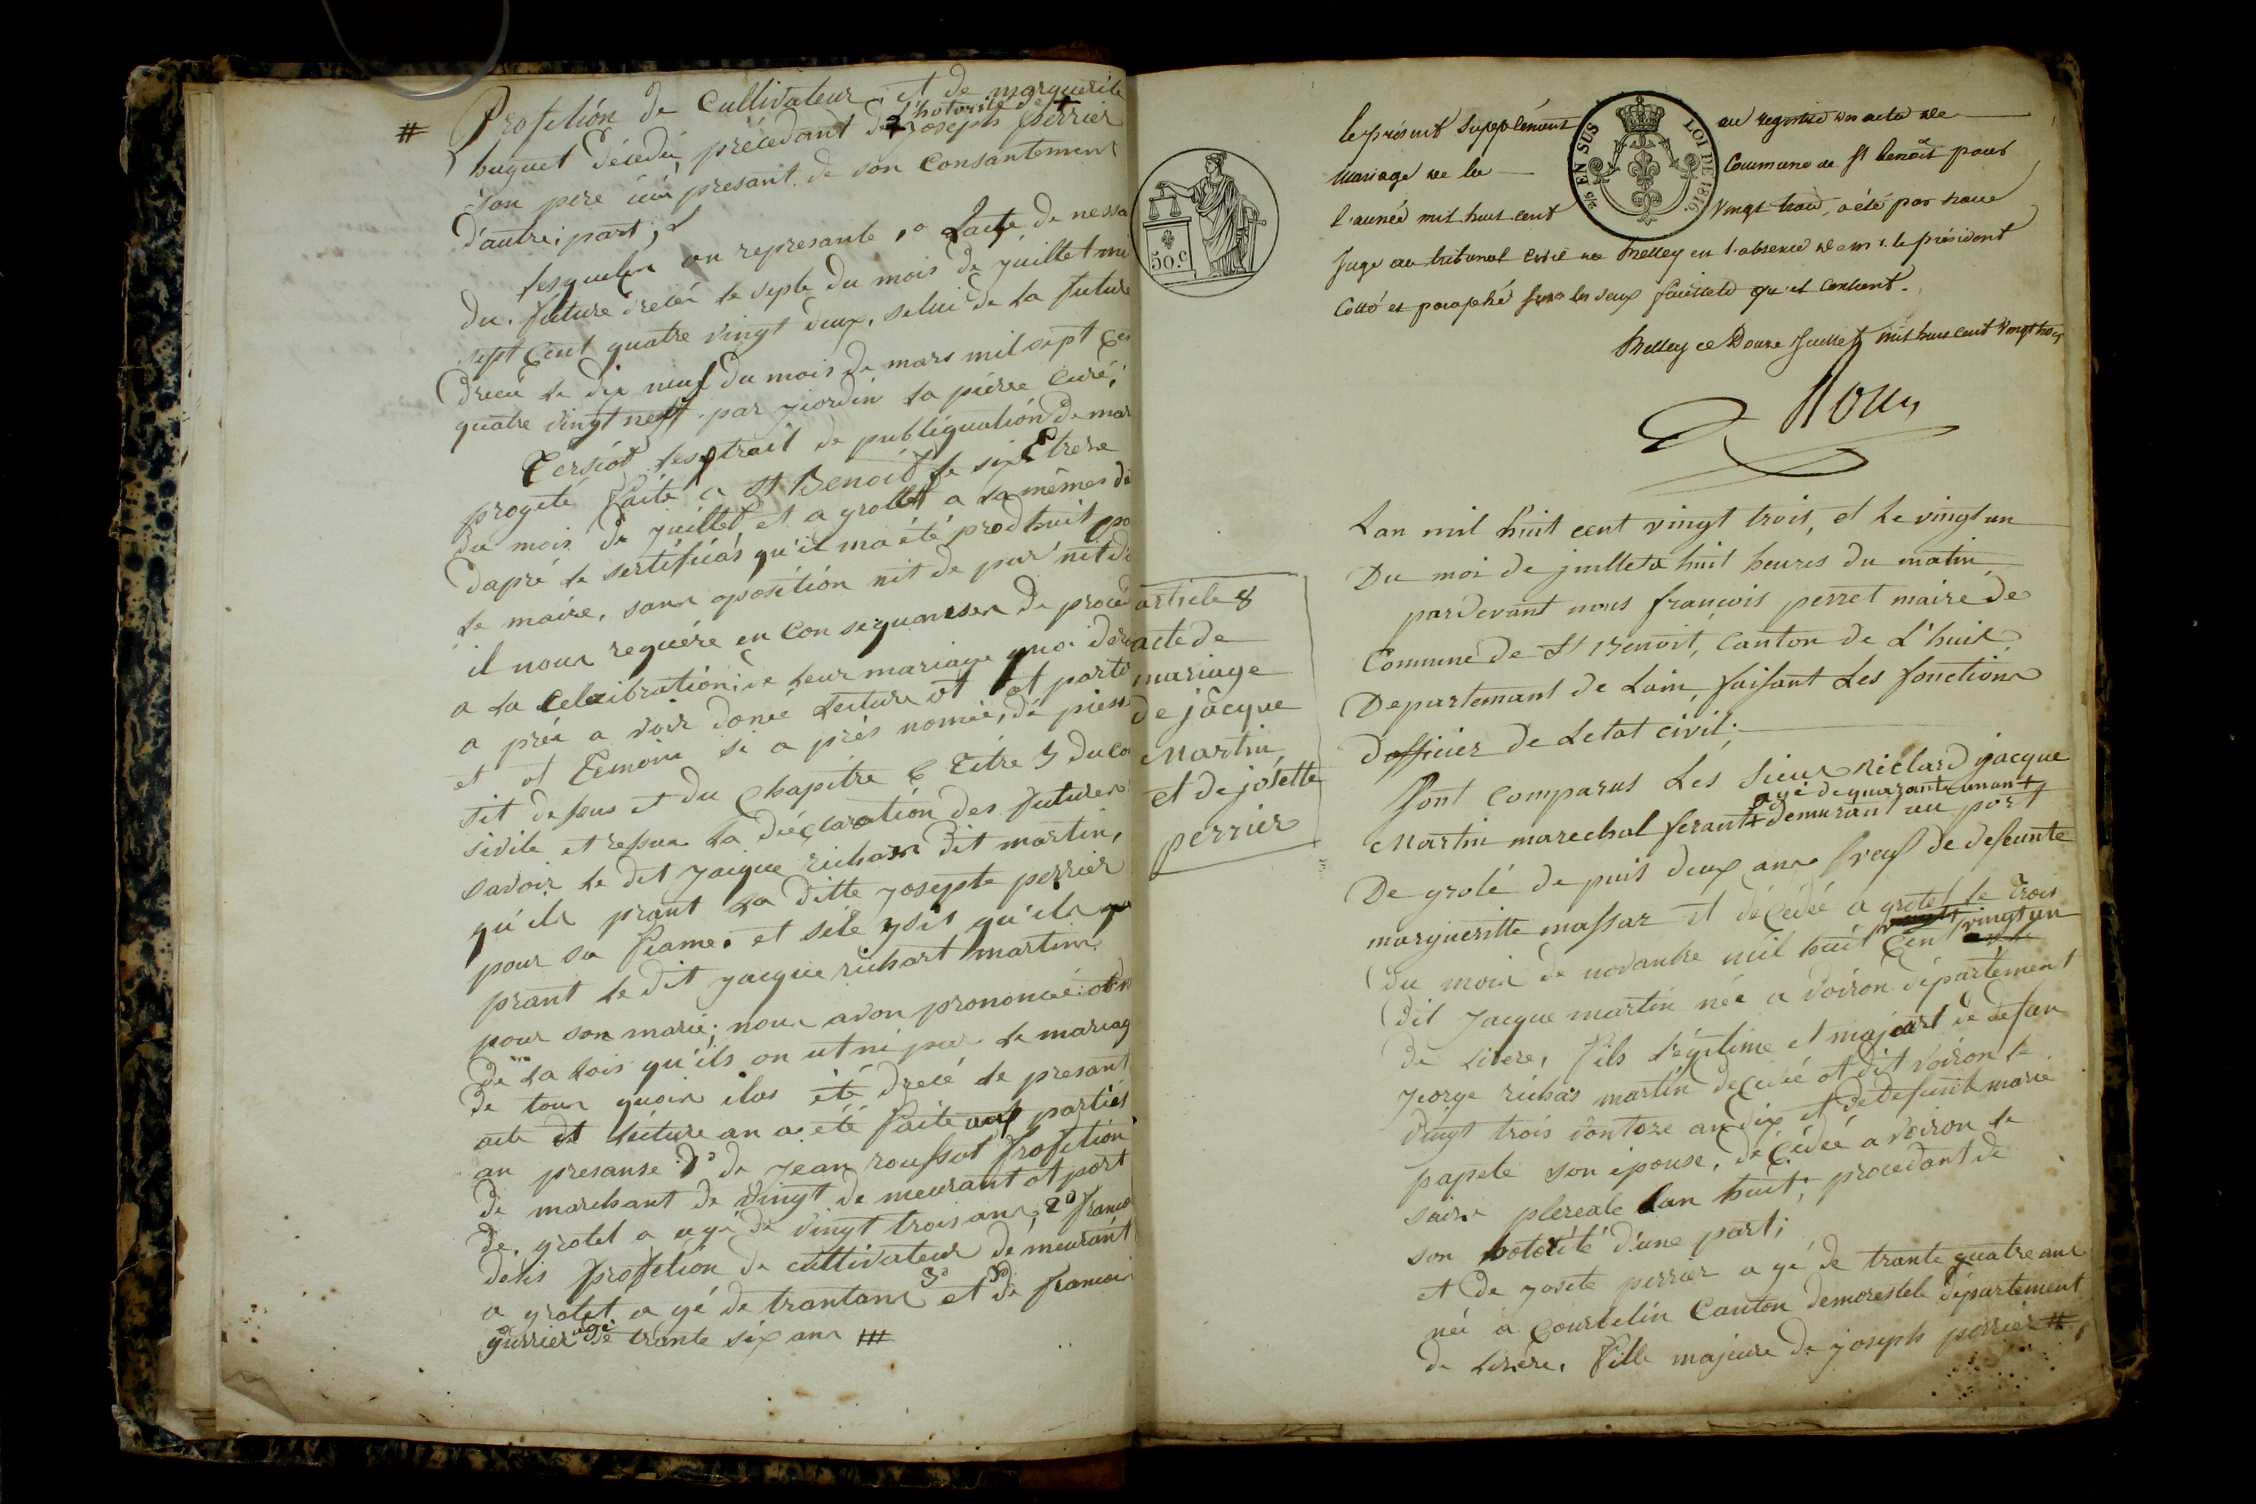 # Profetion de Cultivateur et de marguerite
huguet décedé, précedant de L'hotorité de + joseph perrier
son pere icii presant de son consantement
d'autre part, L
lesquelx on represante, 1º Lacte de nessa
du future drecée le septe du mois de juillet mil
sept Cent quatre vingt deux, selui de la future
dreceé le dix neuf du mois de mars mil sept Cen
quatre vingt neff par jiordin la pierre Curé,
progeté faite a St Benoit le six Et treze
du mois de juillet et a grollet a la mêmes da
dapré le sertificas qu'il ma été prodhuit po
le maire, sans oposition nit de par nit d
il nous requére en Consequansser de procéd
a la Celeibration de leur mariage quoi de
a préa a voir doneé lecture ot parte
et ot temoins si a prés nomées, dé piess
sit desus et du Chapitre 6 titre 5 du Co
sivile et resus la déclaration des futures
savoir le dit jacque richar dit martin,
qu'ils prant la ditte josepte perrier
pour sa feame. et sele ysit qu'ils
prant le dit jacque richart martin
pour son marié; nous avon prononceé ot n
de la lois qu'ils on ut ni par le mariag
de tous quoin ilas été drecé le presant
acte et lecture an a été faite aux parties
an presanse 1º de jean roussot profetion
de marchant de vingt demeurant ot port
de grolet a agé de vingt trois ans, 2º franco
profetion de cultivateur demeurant
a grolet a gé de trantans 3º et de francoi
gurrier agé de trante six ans #

50.c
2/5 EN SUS
LOI DE 1816.
le présent supplément au registre des actes de
mariage de la Commune de St benoit pour
l'année mil huit cent vingt trois, a été par nous
juge au tribunal civil de Belley en l'absence de Mr. le président
Cotté et paraphé sur les deux feuillets qu'il contient.
Belley ce Douze juillet mil huit cent vingt trois

article 8
acte de
mariage
de jacque
Martin
et de josette
perrier

Lan mil huit cent vingt trois, et le vingt un
Du moi de juillet a huit heures du matin
pardevant nous françois perret maire de
Comune de St Benoit, Canton de L'huis
Departemant de Lain, faisant les fonctions
dofficier de Letat civil;
Sont comparus Les Sieur Richard jacque
Martin marechal ferant + agé de quarante un an + demurant au port
De grolé depuis deux ans veuf de defeunte
margueritte massar et décédé a grolet le trois
du mois de novanbre mil huit Cent vingt un
dit jacque martin née a voiron département
de Lisere, fils Légitime et majeart de defun
jeorge richas martin decedé ot dit voiron le
vingt trois vontoze an dix et de Defunte marie
papete son épouse, décédée a voiron le
saize plereale Lan huit; procedant de
son hotorité d'une part;
et de josete perrier a gé de trante quatre ans
née a Courtelin Canton demorestele département
de Lisere, fille majeure de joseph perrier #